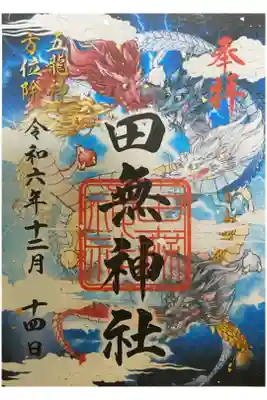 奉拝
田無神社
五龍神
方位除
令和六年十二月 十四日